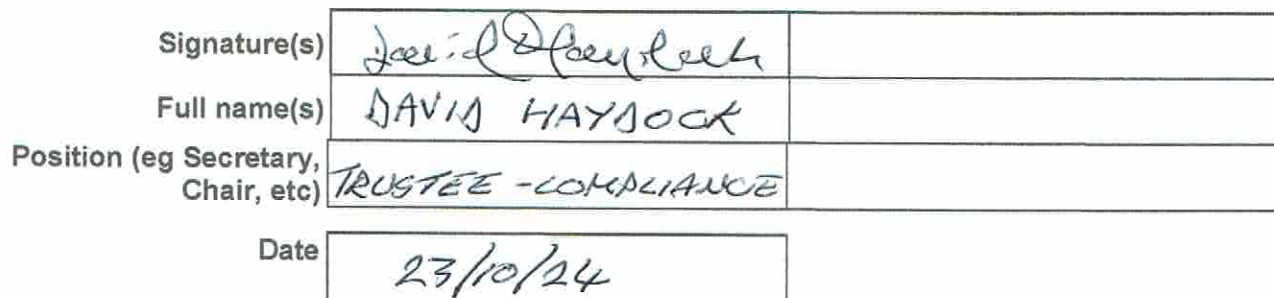 Signature(s)
Full name(s) DAVID HAYDOCK
Position (eg Secretary,
Chair, etc) TRUSTEE - COMPLIANCE
Date 23/10/24